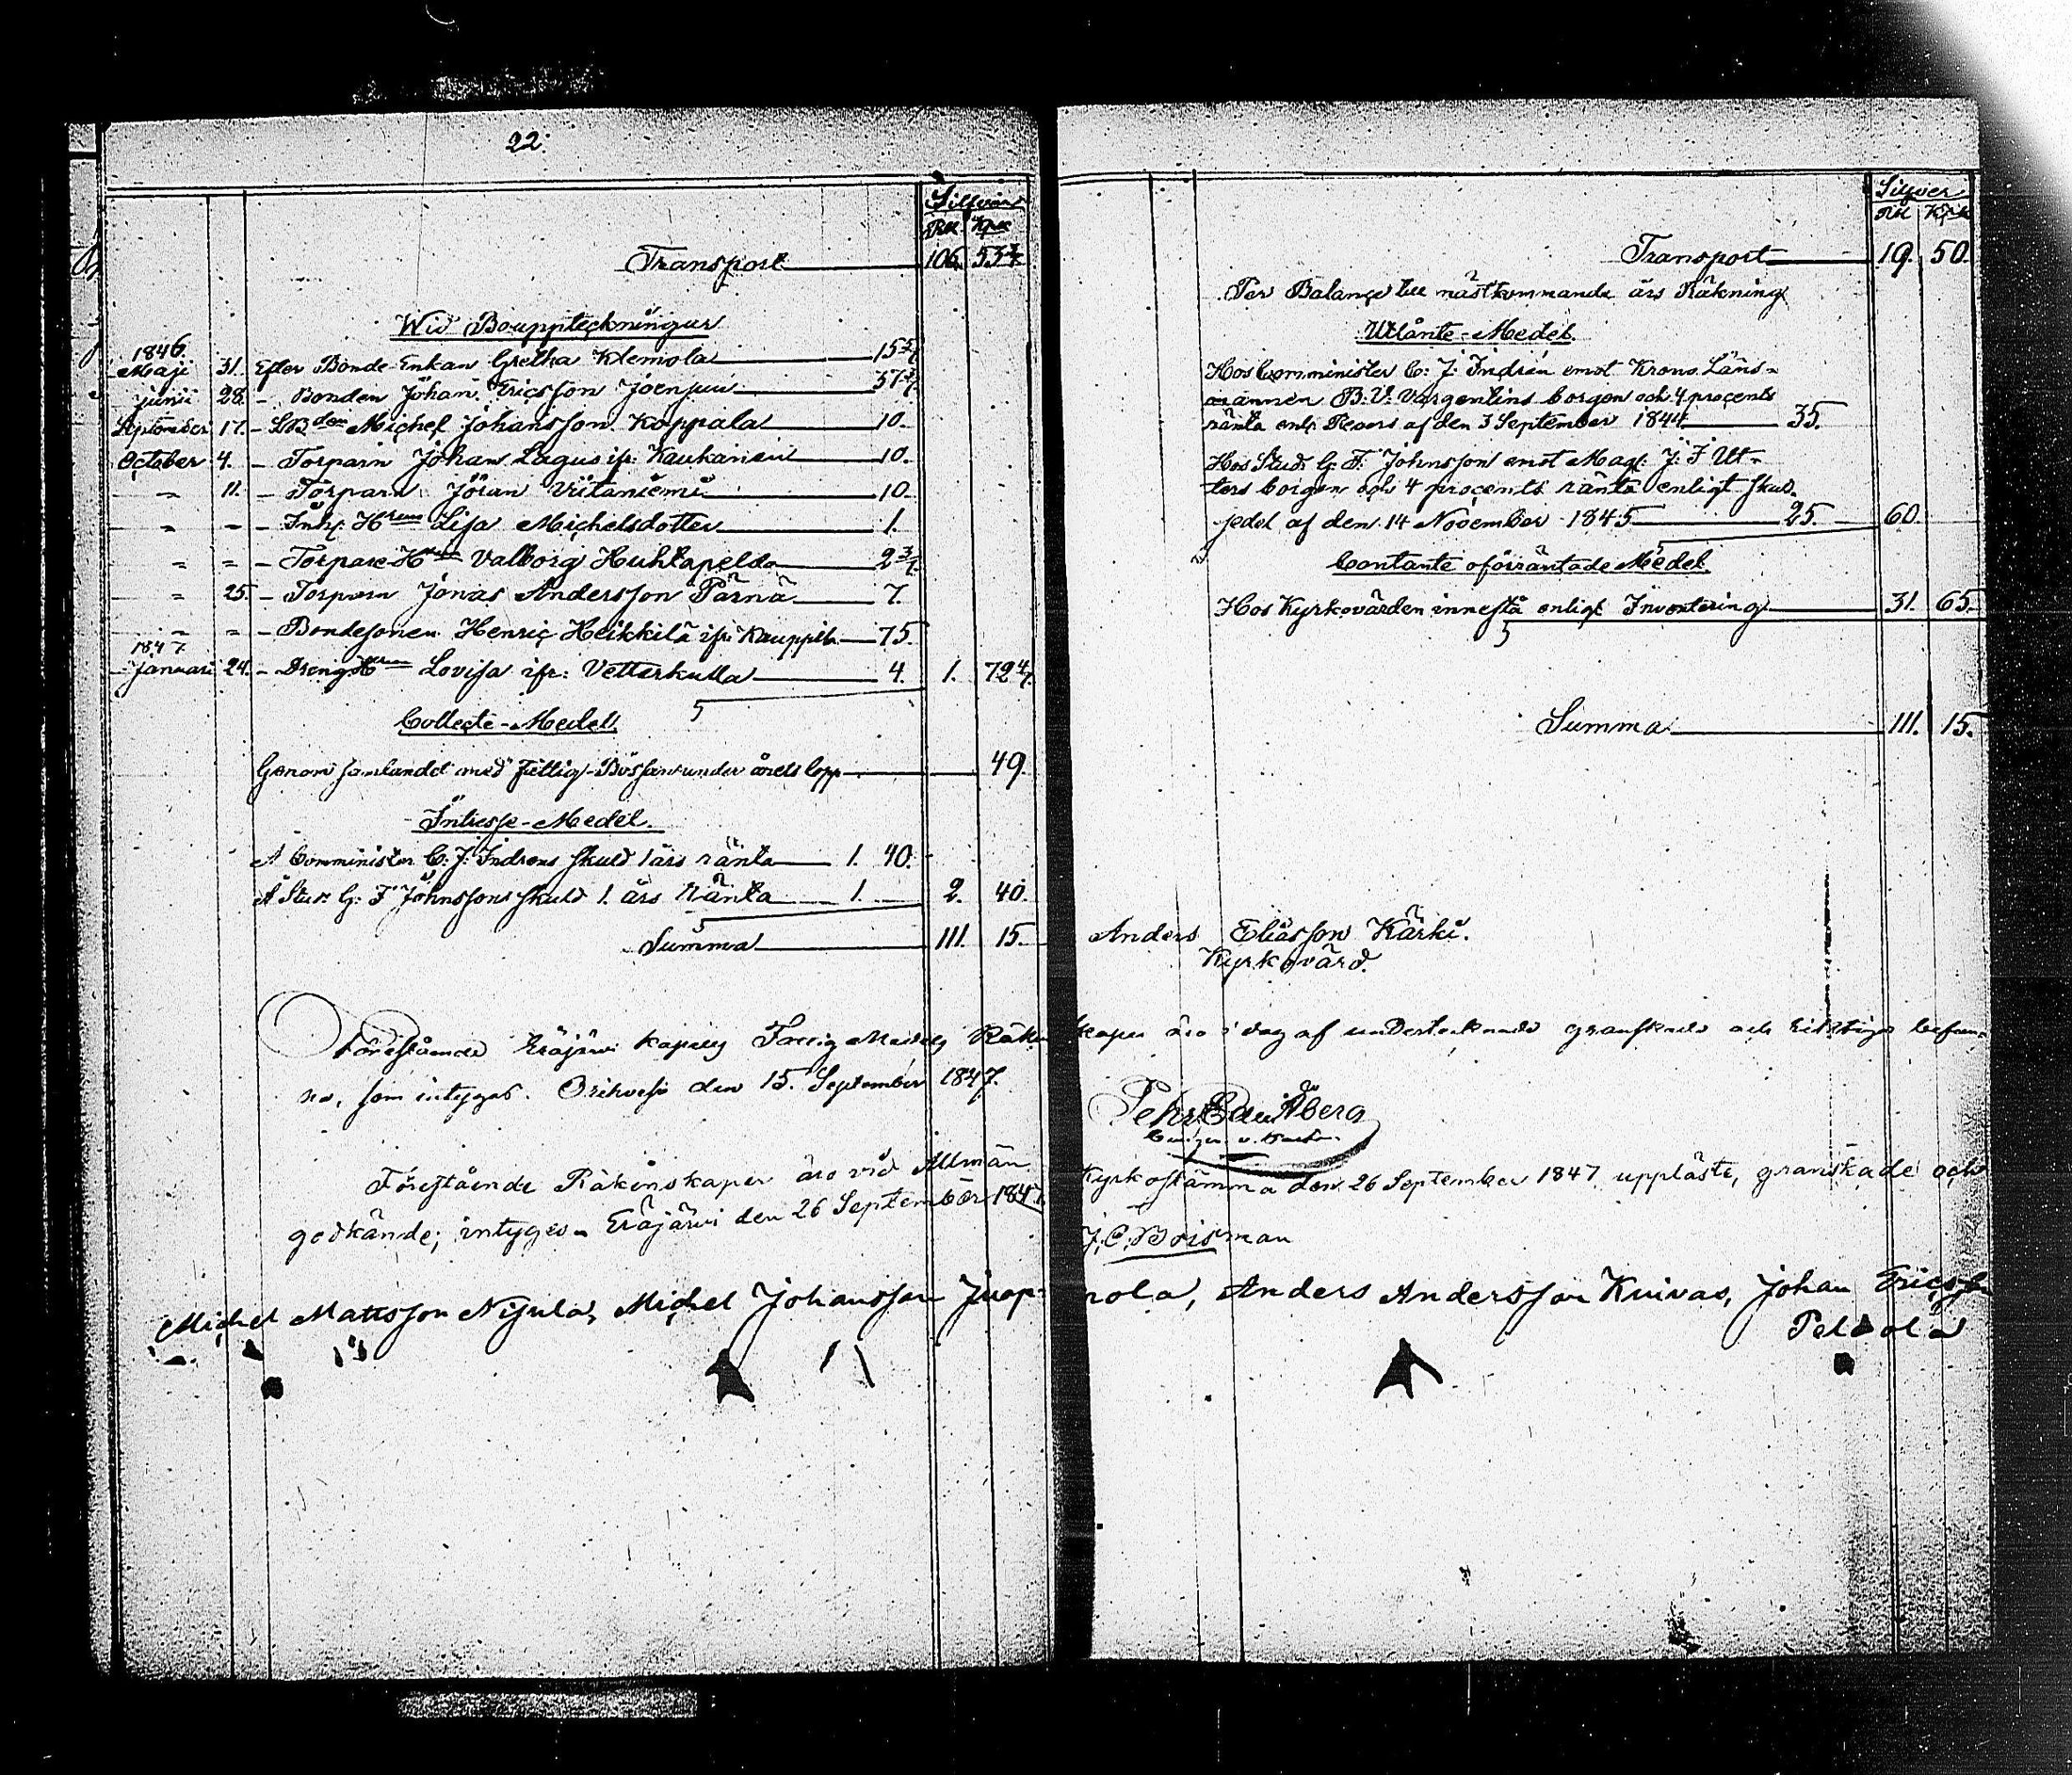 22.
Silfver
Rbl. Kpk
Transport 106. 53 3/7
Wid Bouppteckningar
1846.
Maji 31. Efter Bonde-Enkan Gretha Klemola 15 5/7
junii 28. - Bonden Johan Ericsson Joenjuu 37 3/7
September 17. - Michel Johansson Koppala 10.
October 4. - Torparn Johan Lagus ifr. Kaukarien 10.
" 11. - Torparn Jöran Viitaniemi 10.
" - - Inh. Hrun Lisa Michelsdotter 1.
" = - Torpare-Hrun Valborg Huhtapelda 2 3/7
" 25. - Torparn Jonas Andersson Pärnä 7.
" = - Bondesonen Henric Heikkilä ifr. Kauppila 75.
1847
Januari 24. - Dreng-Hrun Lovisa ifr: Vetterkulla 4. 1. 72 4/7
Collecte-Medel.
Genom samlandet med Fattig-Bössan under årets lopp 49.
Intresse-Medel.
A Comminister C. J. Indrens skuld 1 års ränta 1. 40.
A Stud. G. F. Johnssons skuld 1. års ränta 1. 2. 40.
Summa 111. 15.
Förestående Eräjärvi Kapells Fattig Medels Räken
na, som intygas. Orihvesi den 15. September 1847.
Förestående Räkenskaper äro vid Allmän
godkände; intygas - Eräjärvi den 26 September 1847.
Michel Mattsson Nisula, Michel Johansson Juop-
Silfver
Rbl Kpk
Transport 19. 50.
Per Balance till nästkommande års Räkning
Utlånte-Medel.
Hos Comminister C. J. Indrén emot Krono Läns-
mannen B. V. Vargentins borgen och 4 procents
ränta enl. Revers af den 3 September 1844. 35.
Hos Stud. G. F. Johnsson emot Mag. J. F. Ut-
ters borgen och 4 procents ränta enligt skuld-
sedel af den 14 November 1845 25. 60.
Contante oförräntade Medel.
Hos Kyrkovärden innestå enligt Inventering 31. 65.
Summa 111. 15.
Anders Eliasson Kärki.
Kyrkovärd.
skaper äro i dag af undertecknad granskade och riktige befun-
Pehr Åberg
Kyrkostämma den 26 September 1847 uppläste, granskade och
J. C. Brisman
nola, Anders Andersson Kuivas, Johan Ericsson
Peldola